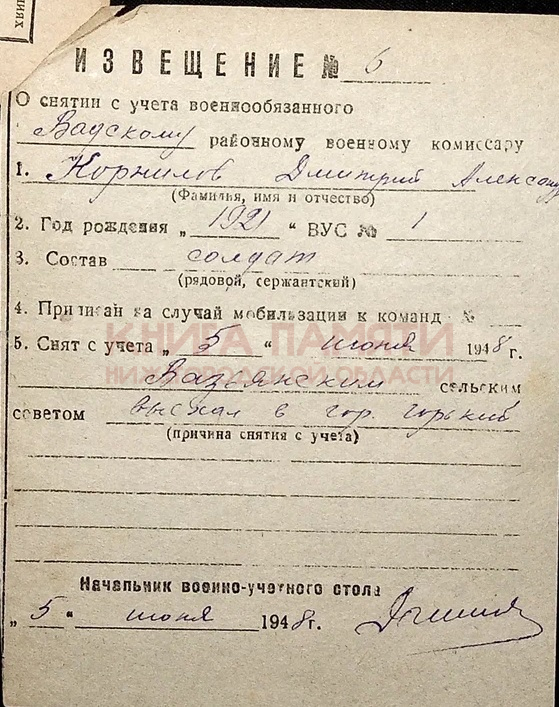 ИЗВЕЩЕНИЕ № 6
О снятии с учета военнообязанного
Вадскому районному военному комиссару
1. Корнилов Дмитрий Александ
(Фамилия, имя и отчество)
2. Год рождения „ 1921 “ ВУС № 1
3. Состав солдат
(рядовой, сержантский)
4. Приписан на случай мобилизации к команд №
КНИГА ПАМЯТИ
5. Снят с учета „ 5 “ июня 1948 г.
НИЖЕГОРОДСКОЙ ОБЛАСТИ
Вазьянским сельским
советом выехал в гор. Горький
(причина снятия с учета)
Начальник военно-учетного стола
„ 5 “ июня 1948 г.